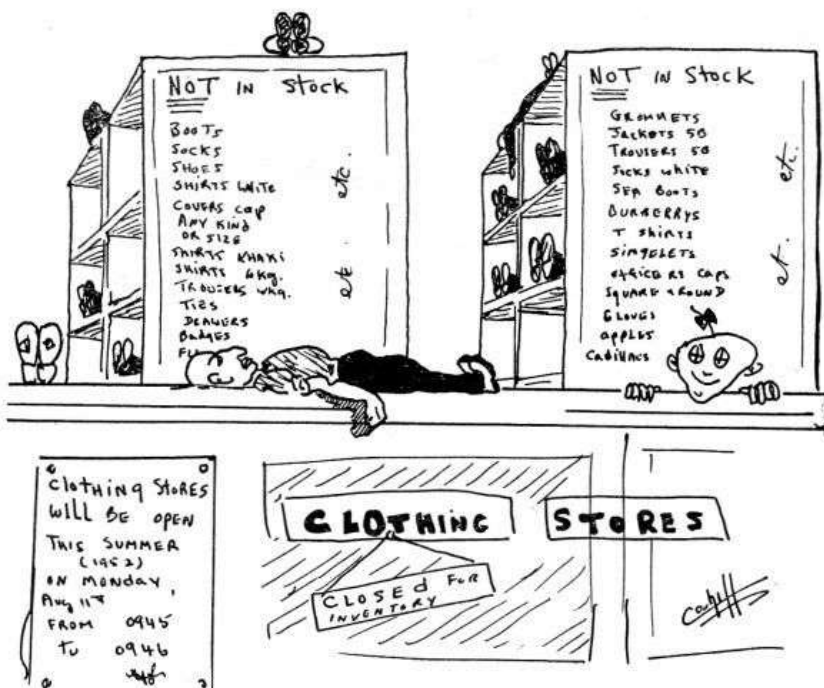 NOT IN Stock
BOOTS
SOCKS
SHOES
SHIRTS WHITE
COVERS CAP
ANY KIND
OR SIZE
SHIRTS KHAKI
SHIRTS WKG.
TROUSERS WKG.
TIES
DRAWERS
BADGES
etc.
etc
NOT IN Stock
GROMMETS
JACKETS 5B
TROUSERS 5B
SOCKS WHITE
SEA BOOTS
BURBERRYS
T SHIRTS
SINGELETS
OFFICERS CAPS
SQUARE + ROUND
GLOVES
apples
Cadillacs
etc.
et.
Clothing STORES
WILL BE OPEN
THIS SUMMER
(1952)
ON MONDAY,
Aug 11th
FROM 0945
To 0946
CLOTHING STORES
CLOSEd FOR
INVENTORY